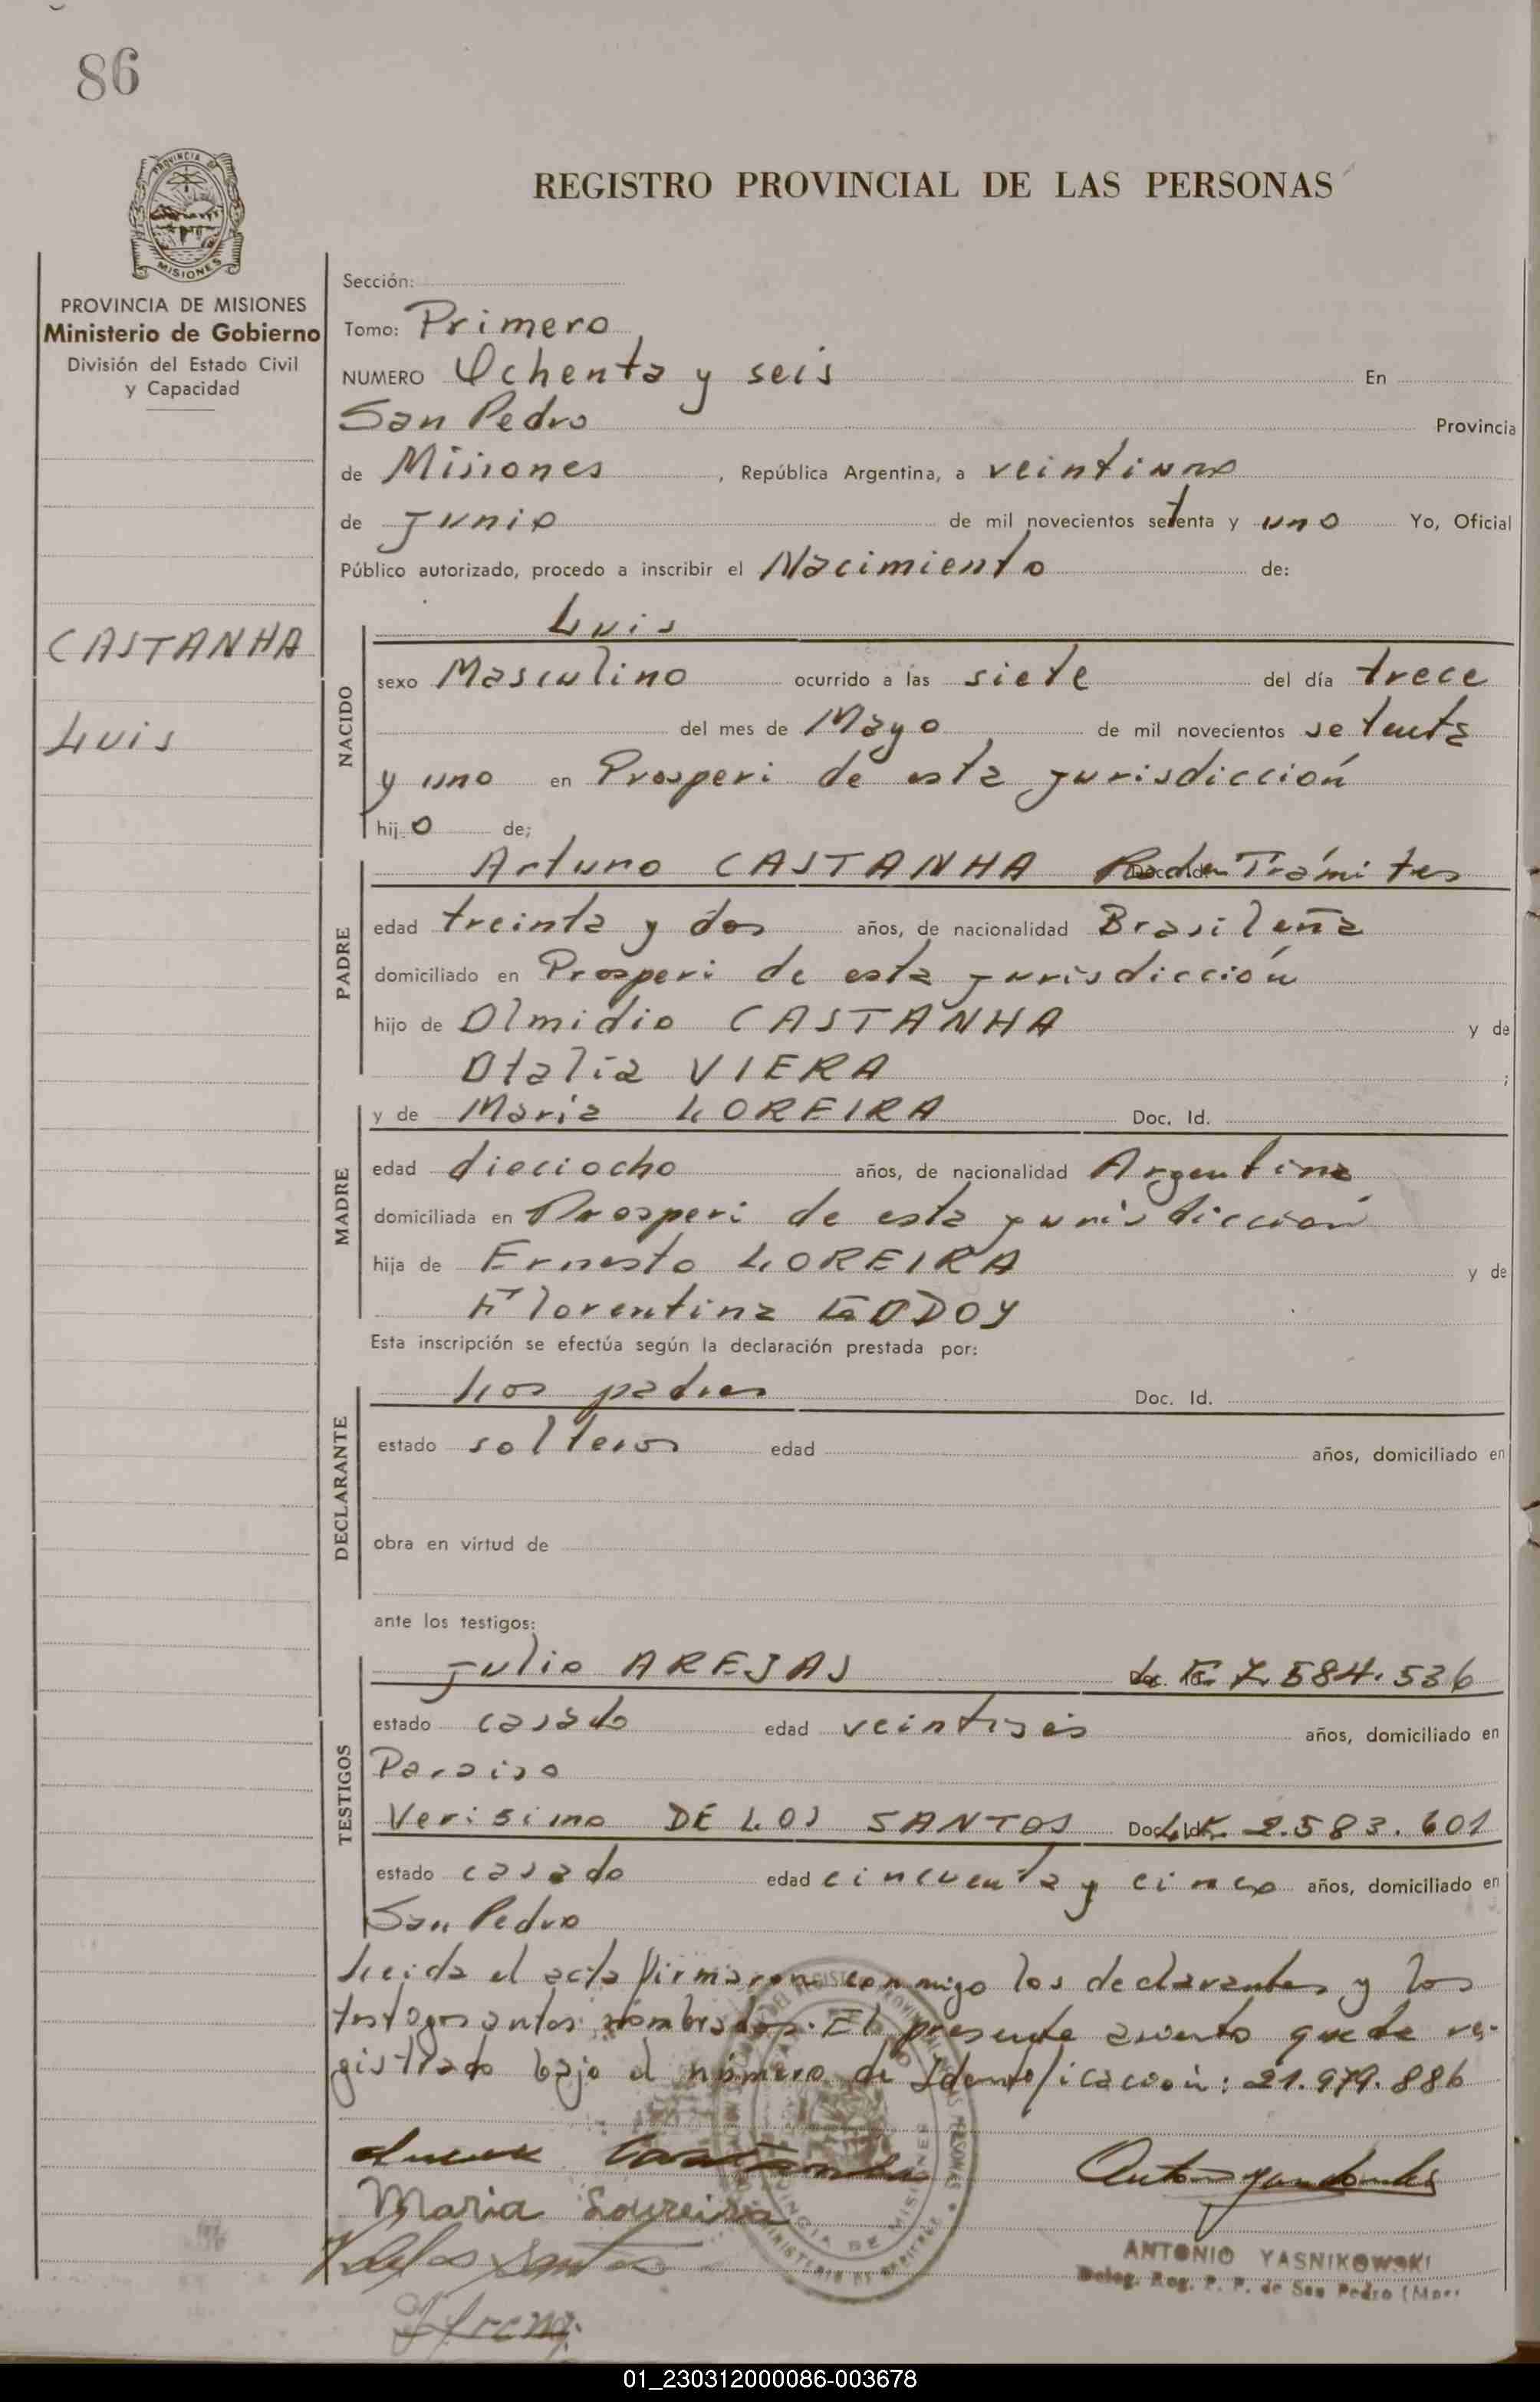 86
PROVINCIA DE
MISIONES
REGISTRO PROVINCIAL DE LAS PERSONAS
PROVINCIA DE MISIONES
Ministerio de Gobierno
División del Estado Civil
y Capacidad
CASTANHA
Luis
Sección:
Tomo: Primero
NUMERO Ochenta y seis En
San Pedro Provincia
de Misiones, República Argentina, a veintiuno
de Junio de mil novecientos setenta y uno Yo, Oficial
Público autorizado, procedo a inscribir el Nacimiento de:
NACIDO
Luis
sexo Masculino ocurrido a las siete del día trece
del mes de Mayo de mil novecientos setenta
y uno en Prosperi de esta jurisdicción
hijo de;
PADRE
Arturo CASTANHA Rad. en Trámites
edad treinta y dos años, de nacionalidad Brasileña
domiciliado en Prosperi de esta jurisdicción
hijo de Olmidio CASTANHA y de
Otalia VIERA ;
MADRE
y de Maria LOREIRA Doc. Id.
edad dieciocho años, de nacionalidad Argentina
domiciliada en Prosperi de esta jurisdicción
hija de Ernesto LOREIRA y de
Florentina GODOY
Esta inscripción se efectúa según la declaración prestada por:
DECLARANTE
Los padres Doc. Id.
estado solteros edad años, domiciliado en
obra en virtud de
ante los testigos:
TESTIGOS
Julio AREJAS L.E. 7.584.536
estado casado edad veintiseis años, domiciliado en
Paraiso
Verisimo DE LOS SANTOS Doc. Id. 2.583.601
estado casado edad cincuenta y cinco años, domiciliado en
San Pedro
Leida el acta firmaron conmigo los declarantes y los
testigos antes nombrados. El presente asiento queda re-
gistrado bajo el número de Identificación: 21.979.886
Castanha
Maria Loureira
ANTONIO YASNIKOWSKI
Deleg. Reg. P. P. de San Pedro (Mnes
01_230312000086-003678